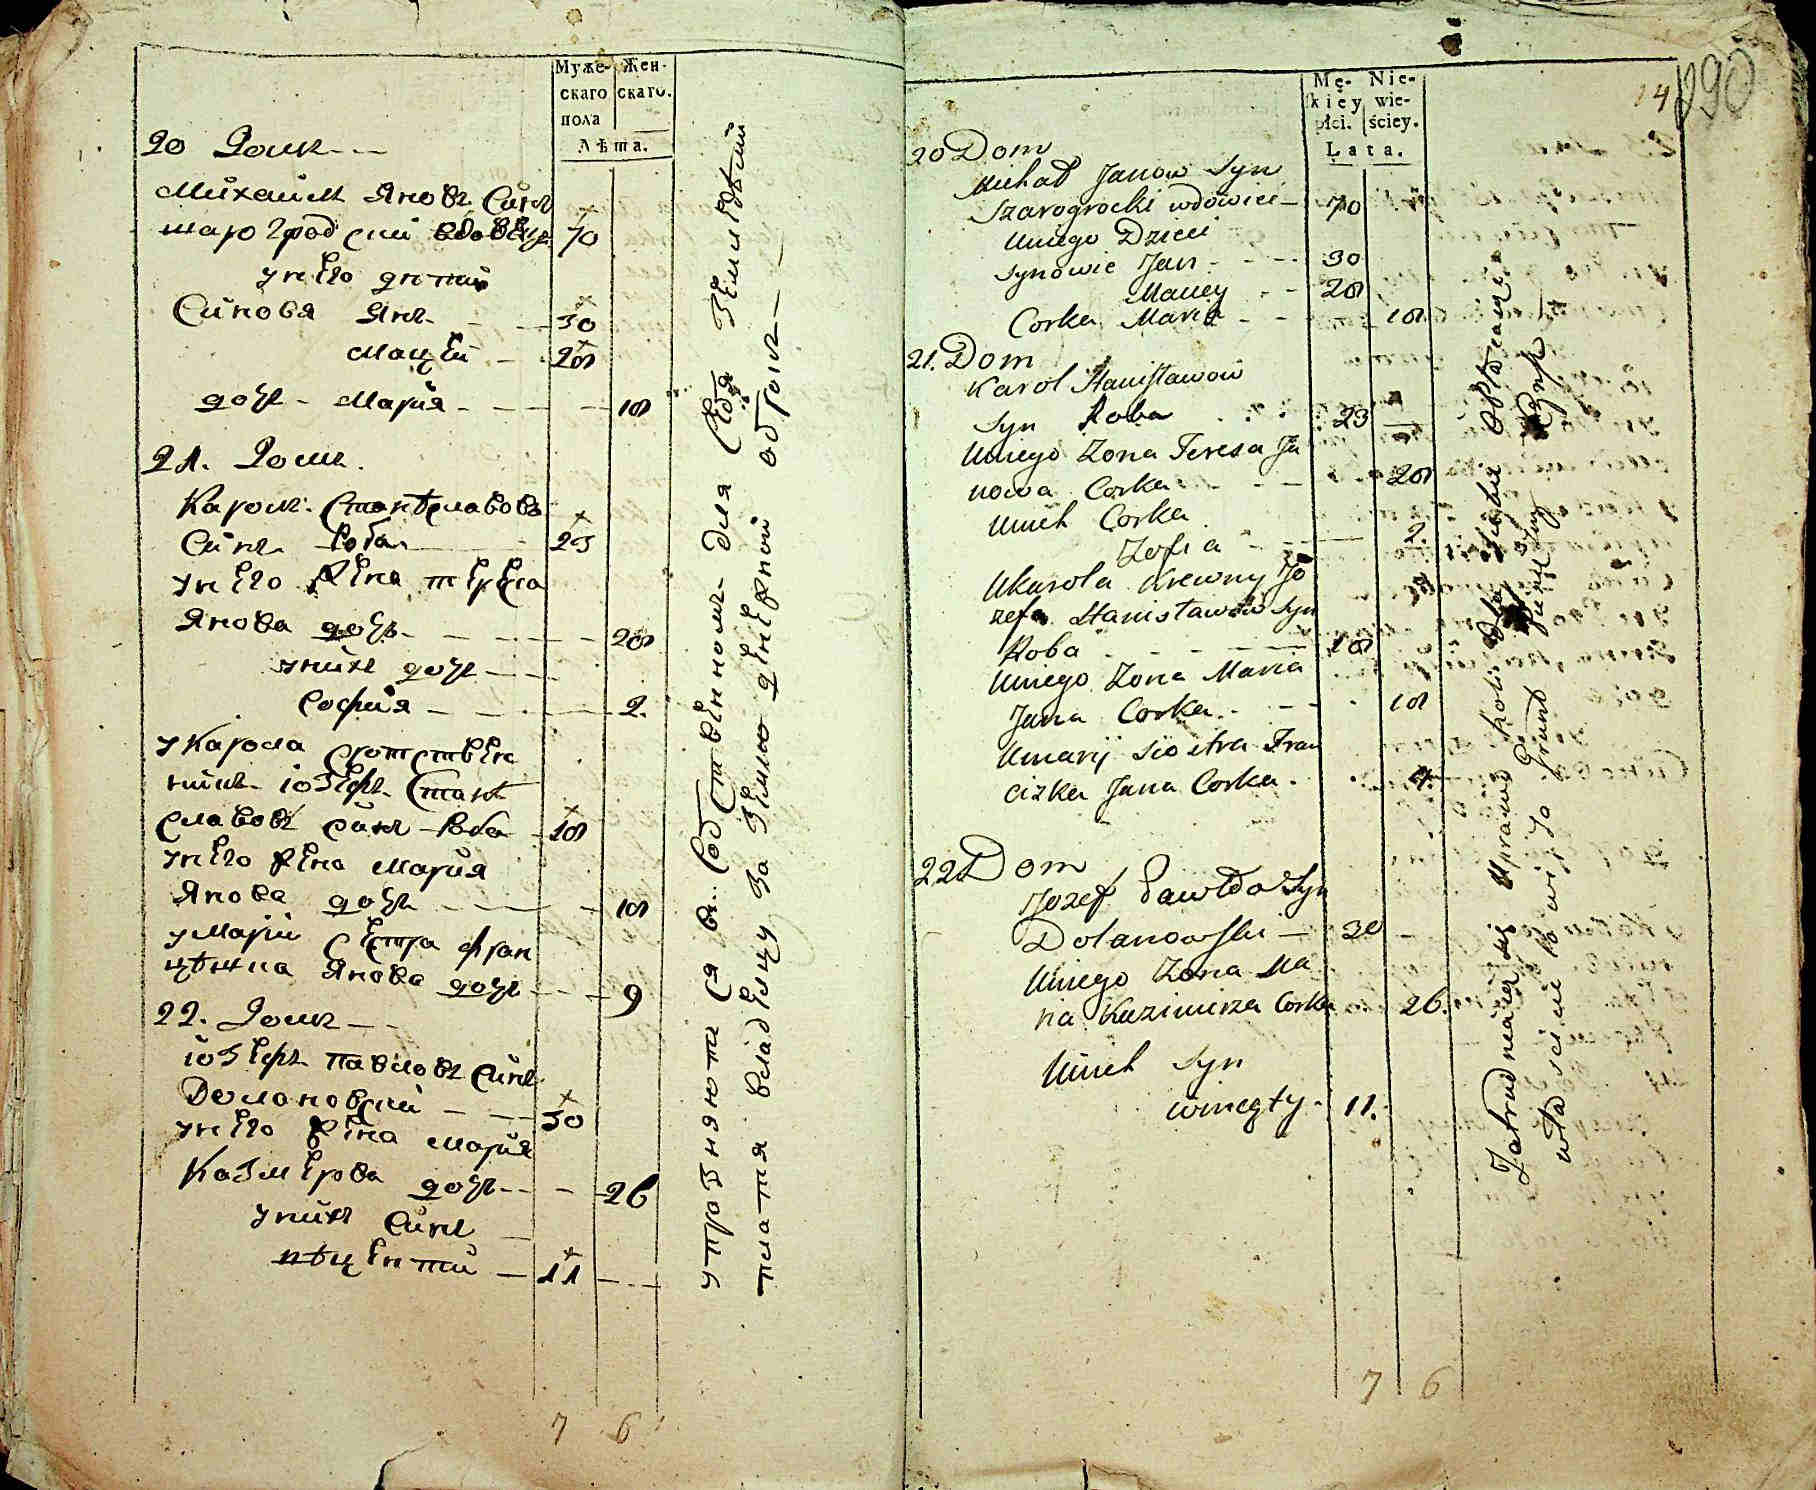 Муже-
скаго
пола
Жен-
скаго.
Лѣта.
20 Домъ
Михаилъ Яновъ Синъ
шарогродскій вдовецъ 70
у него дѣти
Синовя Янъ 30
Мацѣй 28
дочь Марія 18
21. Домъ.
Кароль Станѣславовъ
Синъ Роба 23
у него жена тереса
Янова дочь 28
у нихъ дочь
Софія 2.
у Кароля сродствен
никъ іозефъ Станѣ
славовъ синъ Роба 18
у него жена Марія
Янова дочь 18
у Маріи сестра Фран
цѣшка Янова дочь 9
22. Домъ
іозефъ павловъ синъ
Долановскій 30
у него жена Марія
Казмерова дочь 26
у нихъ Синъ
вѣцентій 11
7 6
упрозняются въ собственномъ для себя земледѣліи
платя владелцу за землю денежной оброкъ
14
890
Mę-
skiey
płci.
Nie-
wie-
ściey.
Lata.
20 Dom
Michał Janow Syn
Szarogrocki wdowiec 70
Uniego Dzieci
Synowie Jan 30
Maciey 28
Corka Maria 18
21. Dom
Karol Stanisławow
Syn Roba 23
Uniego Zona Teresa Ja
nowa Corka 28
Unich Corka
Zofia 2.
Ukarola Krewny Jo
zef Stanisławow Syn
Roba 18
Uniego Zona Maria
Jana Corka 18
Umaryi Siostra Fran
ciszka Jana Corka 9
22. Dom
Jozef Pawłow Syn
Dolanowski 30
Uniego Zona Ma
ria Kazimirza Corka 26.
Unich Syn
Wincęty 11.
7 6
Zatrudniaią się Uprawą Roli dla siebie opłacaiąc
włascicielowi za Grunt pieniężny Czynsz